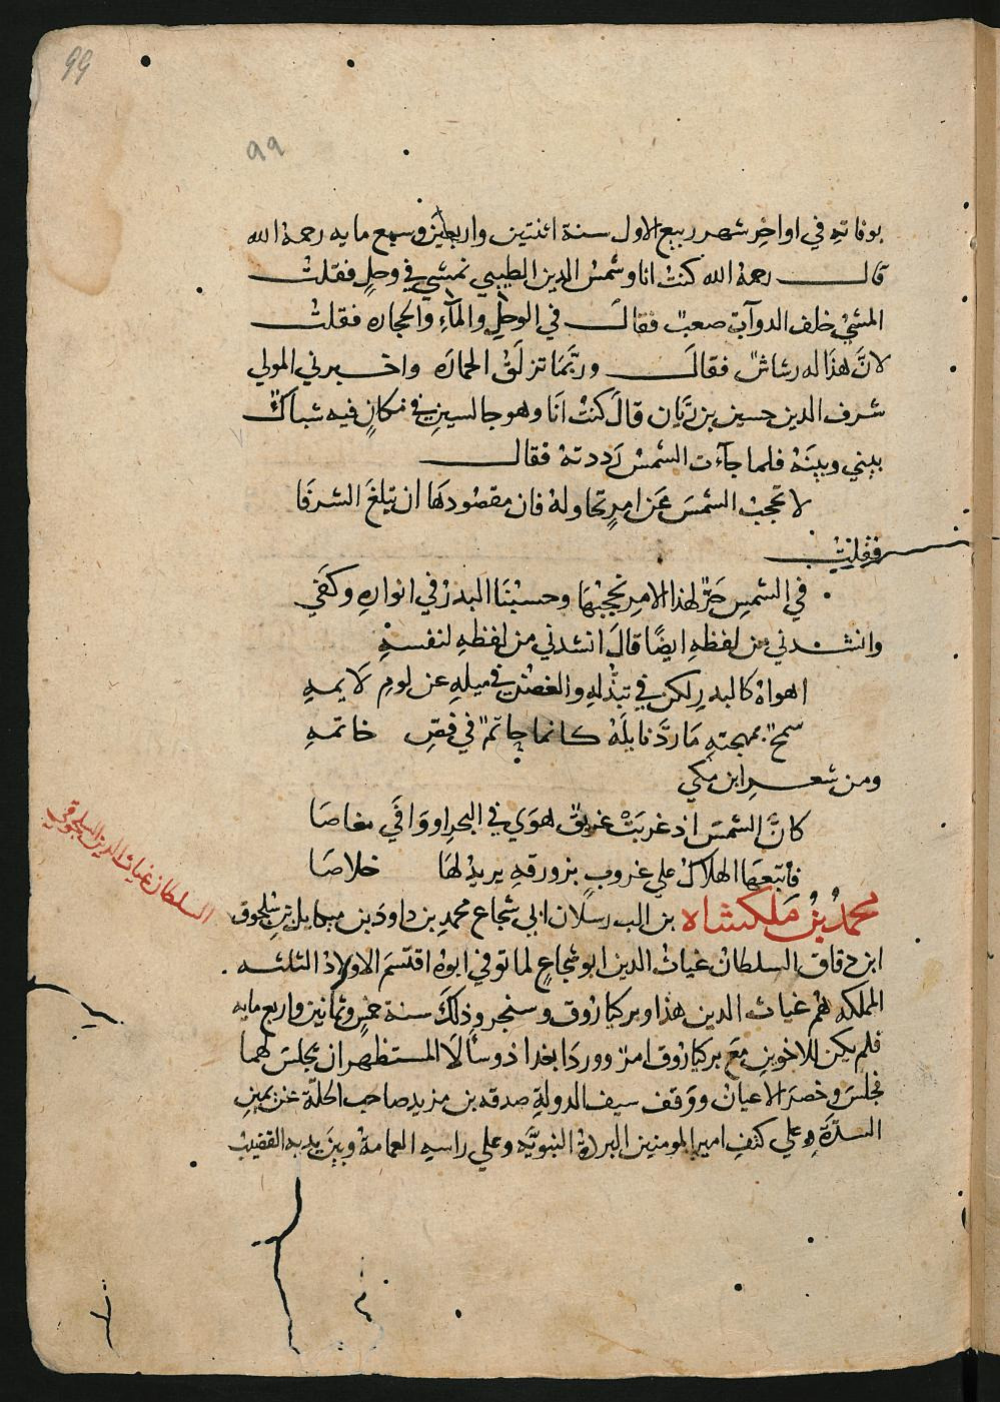 99
٩٩
بوفاته في اواخر شهر ربيع الاول سنة اثنتين واربعين وسبع مايه رحمه الله
قال رحمه الله كنت انا وشمس الدين الطيبي نمشي في وحل فقلت
المشي خلف الدوآب صعب فقال في الوحل والمآء والحجاره فقلت
لانَّ هذا له رشاش فقال وربَّما تزلق الحماره واخبرني المولي
شرف الدين حسين بن ريان قال كنت انا وهو جالسين في مكان فيه شباك
بيني وبينه فلما جآءت الشمس رددته فقال
لا تحجب الشمس عن امر تحاوله فان مقصودها ان تبلغ الشرفا
فقلت
في الشمس حَرّ لهذا الامر نحجبها وحسبنا البدر في انواره وكفي
وانشدني من لفظه ايضًا قال انشدني من لفظه لنفسه
اهواه كالبدر لكن في تبذله والغصن في ميله عن لوم لايمه
سمح بمهجته ما ردَّ نايله كانما حاتم في فصِّ خاتمه
ومن شعر ابن مكي
كانَّ الشمس اذ غربت غريق هوي في البحر او وافي مغاصا
فاتبعها الهلال علي غروب بزورقه يريد لها خلاصا
محمد بن ملكشاه بن الب رسلان ابي شجاع محمد بن داود بن ميكايل بن سلجوق
ابن دقاق السلطان غياث الدين ابو شجاع لما توفي ابوه اقتسم الاولاد الثلثه
المملكه هم غياث الدين هذا وبركياروق وسنجر وذلك سنة خمس وثمانين واربع مايه
فلم يكن للاخوين مع بركياروق امر ووردا بغداذ وسألا المستظهر ان يجلس لهما
فجلس وحضر الاعيان ووقف سيف الدولة صدقه بن مزيد صاحب الحلة عن يمين
السدَّة وعلي كتف امير المومنين البردة النبويَّه وعلي راسه العمامة وبين يديه القضيب
السلطان غياث الدين السلجوقي